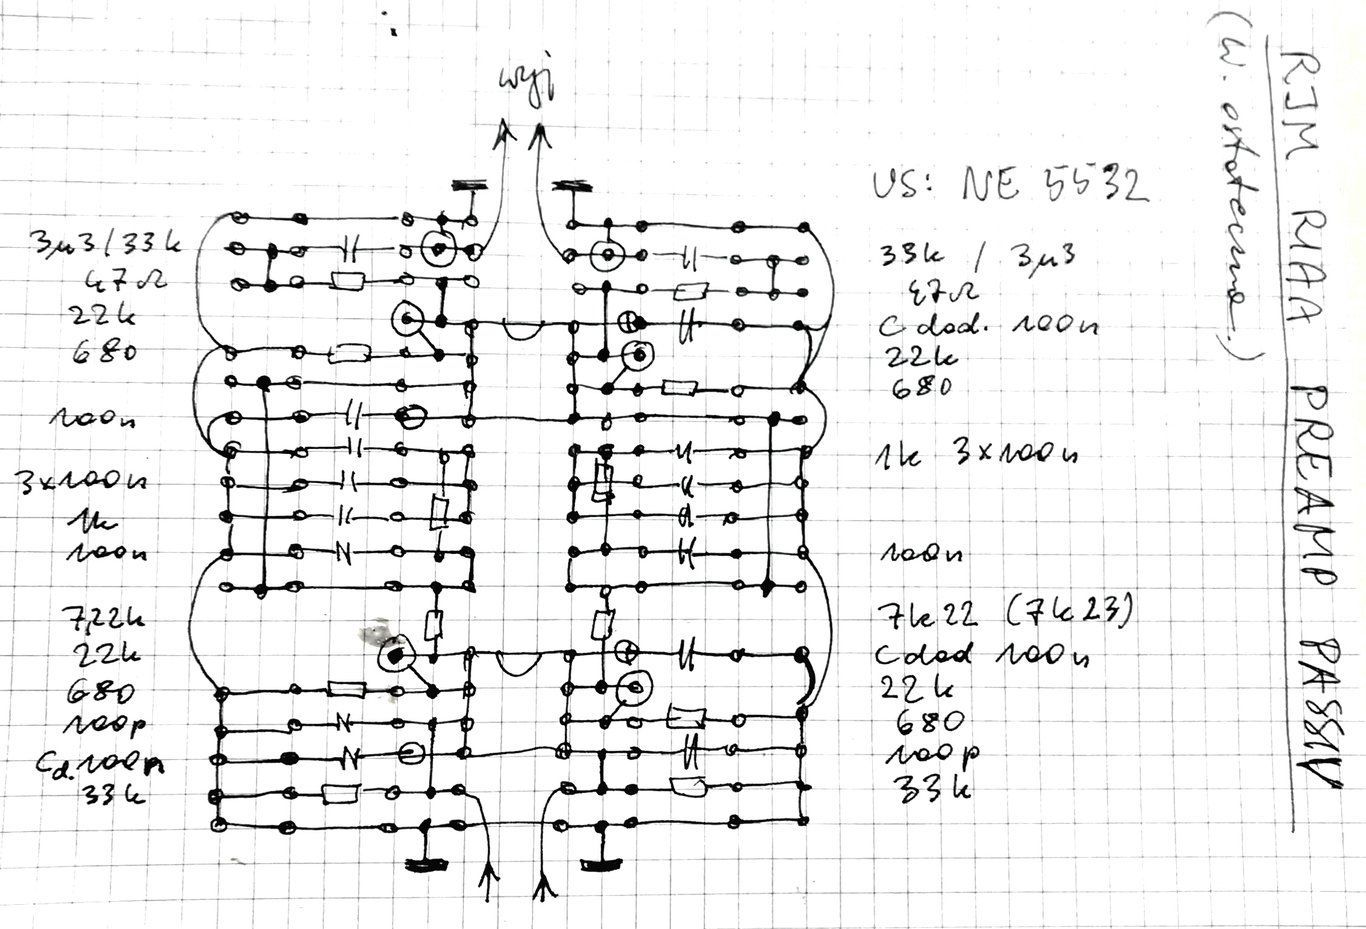 wyj
US: NE 5532
3µ3/33k
47Ω
22k
680
100n
3x100n
1k
100n
7,22k
22k
680
100p
Cd. 100n
33k
33k / 3µ3
47Ω
C dod. 100n
22k
680
1k 3x100n
100n
7k22 (7k23)
C dod 100n
22k
680
100p
33k
RJM RIAA PREAMP PASSIV
(W. ostateczna.)